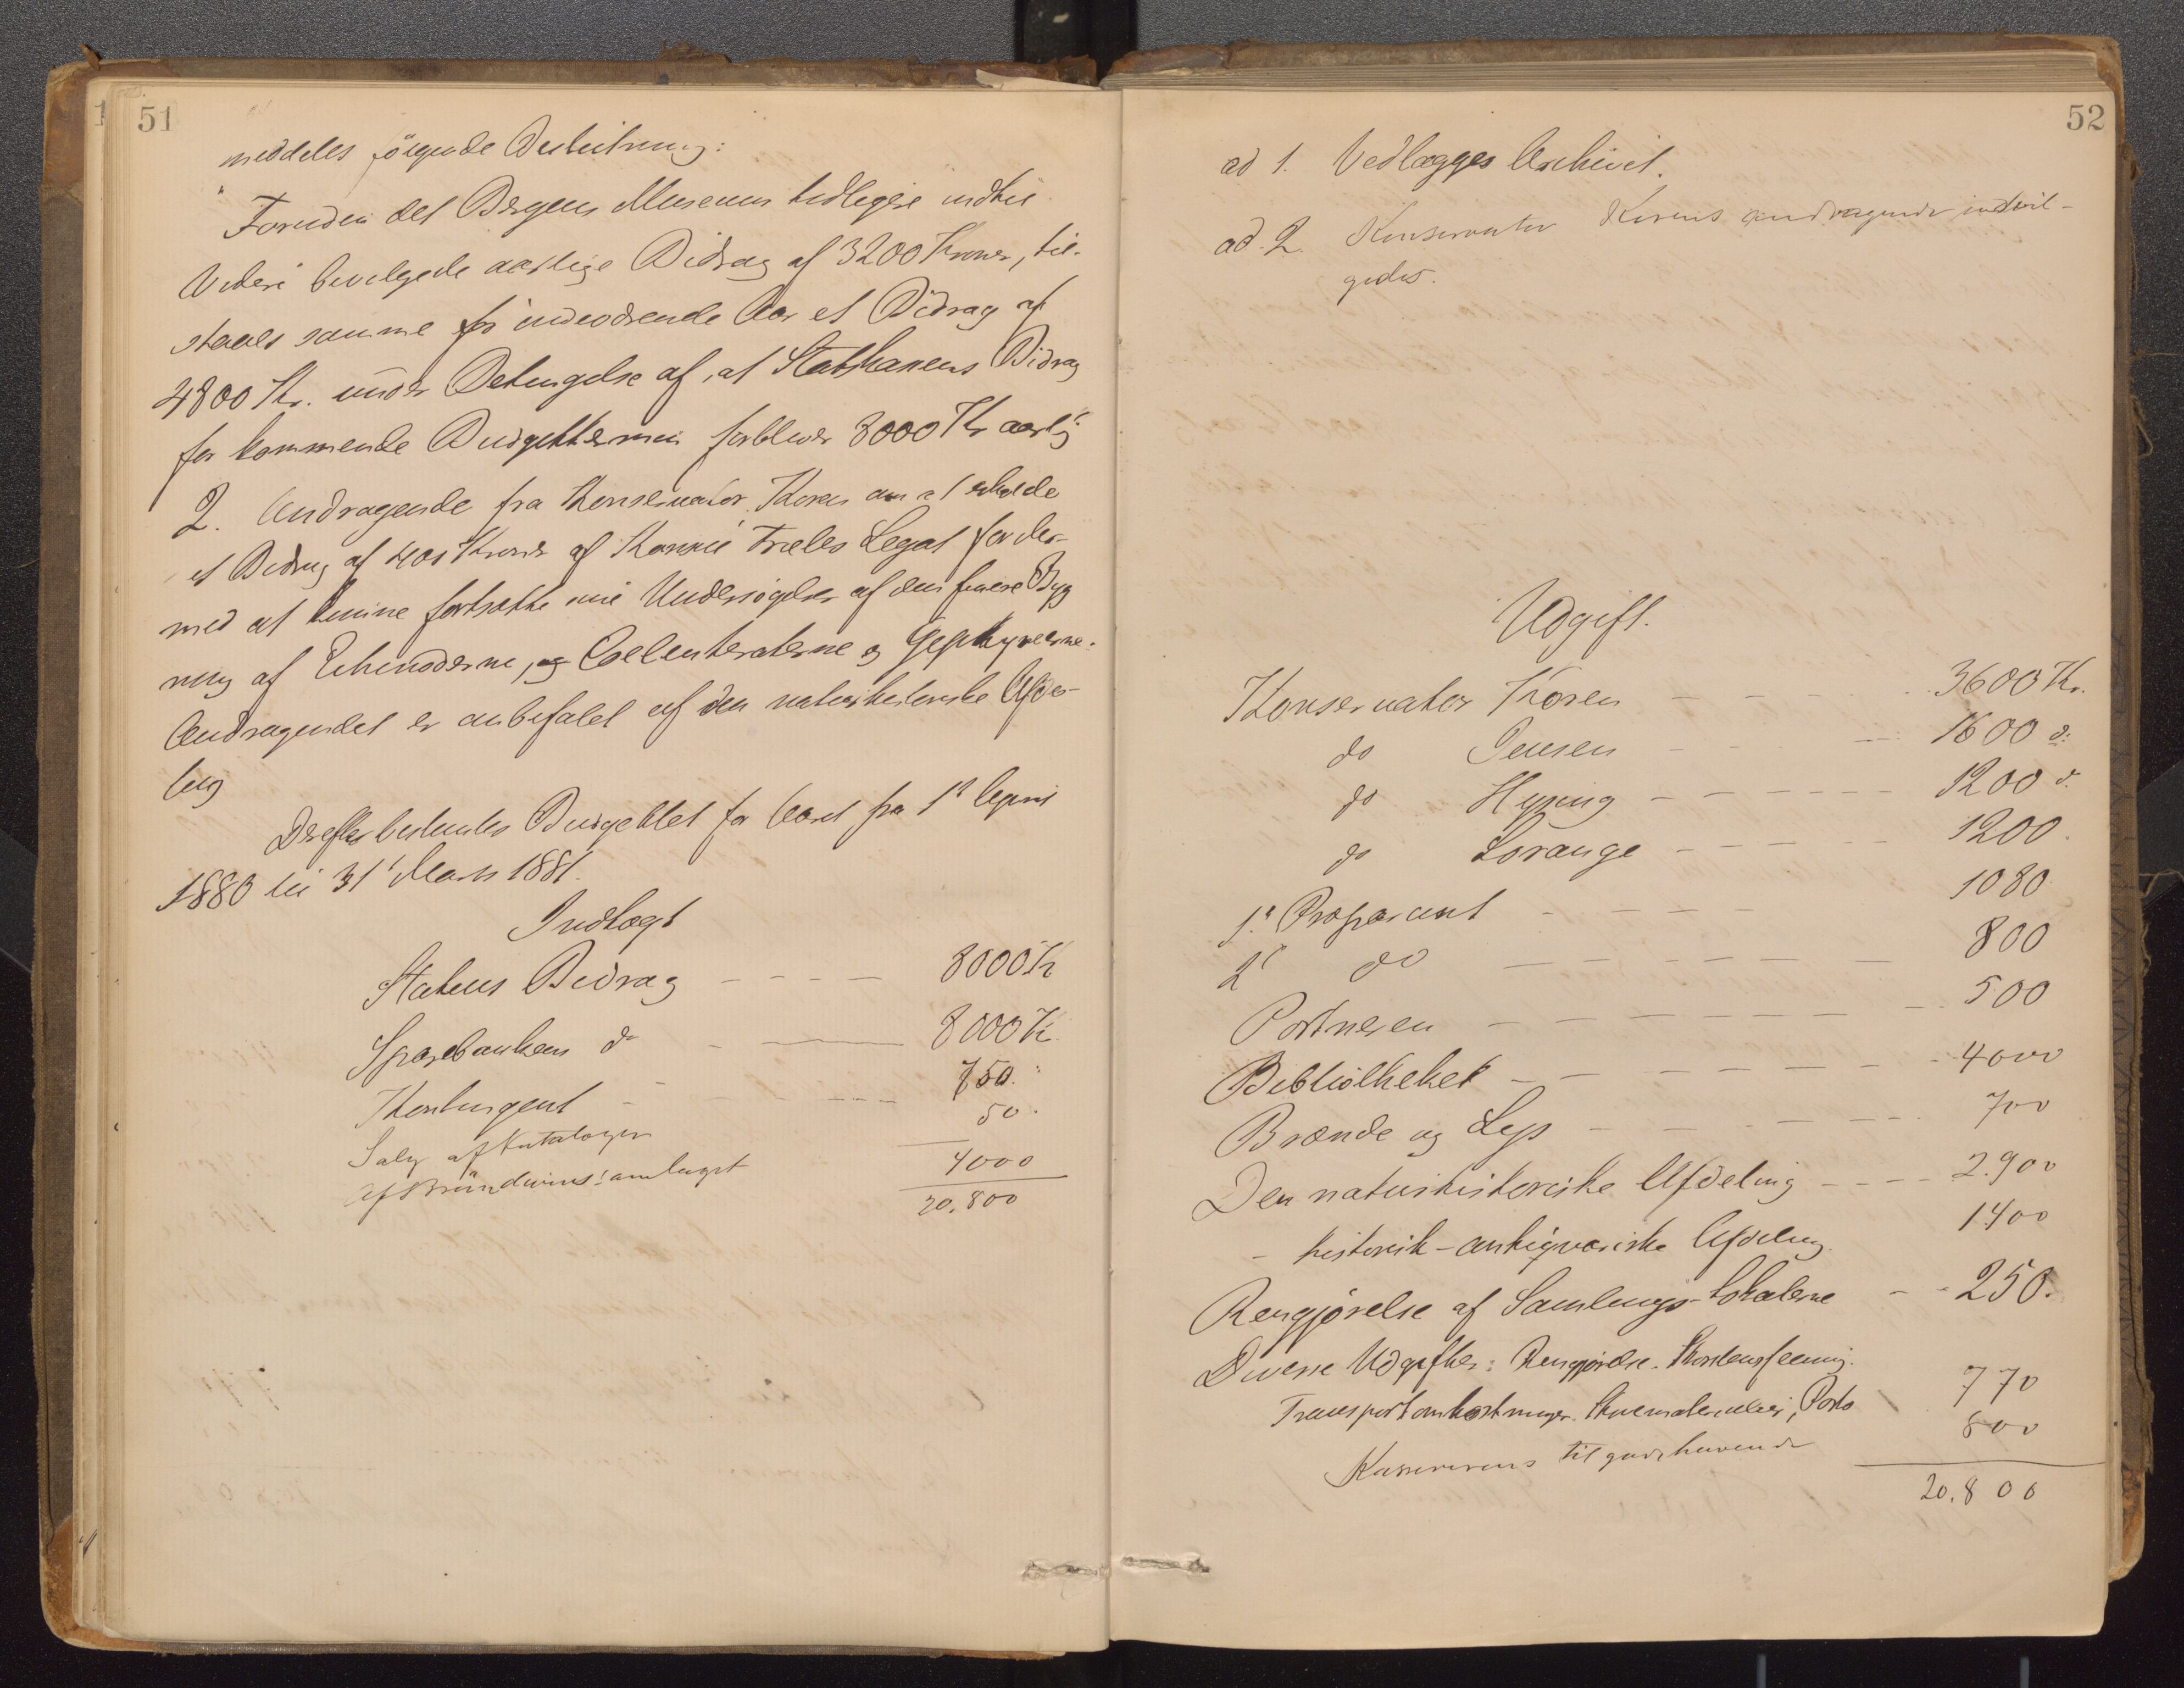 51
meddeles følgende Beslutning:
"Foruden det Bergens Museum tidligere indtil
Videre bevilgede aarlige Bidrag af 3200 Kroner, til-
staaes samme for indeværende Aar et Bidrag af
4800 Kr. under Betingelse af, at Statskassens Bidrag
for kommende Budgettermin forbliver 8000 Kr aarlig"
2. Andragende fra Konservator Koren om at erholde
et Bidrag af 400 Kroner af Legat for der-
med at kunne fortsætte sine Undersøgelser af den finere Byg
ning af Echinoderne, og Coelenteraterne og Gephyreerne.
Andragendet er anbefalet af den naturhistoriske Afde-
ling
Derefter besluttes Budgettet for Aaret fra 1ste April
1880 til 31te Marts 1881.
Indtægt
Statens Bidrag - - - - 8000 Kr
Sparebankens do - - 8000 Kr
Kontingent - - - - 750.
Salg af Kataloger 50.
Af Brændevins samlaget 4000
20,800
52
ad 1. Vedlægges Archivet.
ad. 2. Konservator Korens Andragende indvil-
gedes.
Udgift.
Konservator Koren - - - - - 3600 Kr.
do Jensen - - - 1600 d:
do Hysing - - - - - - 1200 d.
do Lorange - - - - - 1200.
1ste Præparant - - - - 1080
2den do - - - - - - 800
Portneren - - - - - - - 500
Bibliotheket - - - - - - 4000
Brænde og Lys - - - - - 700
Den naturhistoriske Afdeling - - - - 2.900
- historisk-antiqvariske Afdeling. 1400
Rengjørelse af Samlings-Lokalerne - - 250.
Diverse Udgifter: Rengjørelse. Skorstensfeining.
Transportomkostninger. Skrivematerialier, Porto 770
Kassererens tilgodehavende 800
20.800